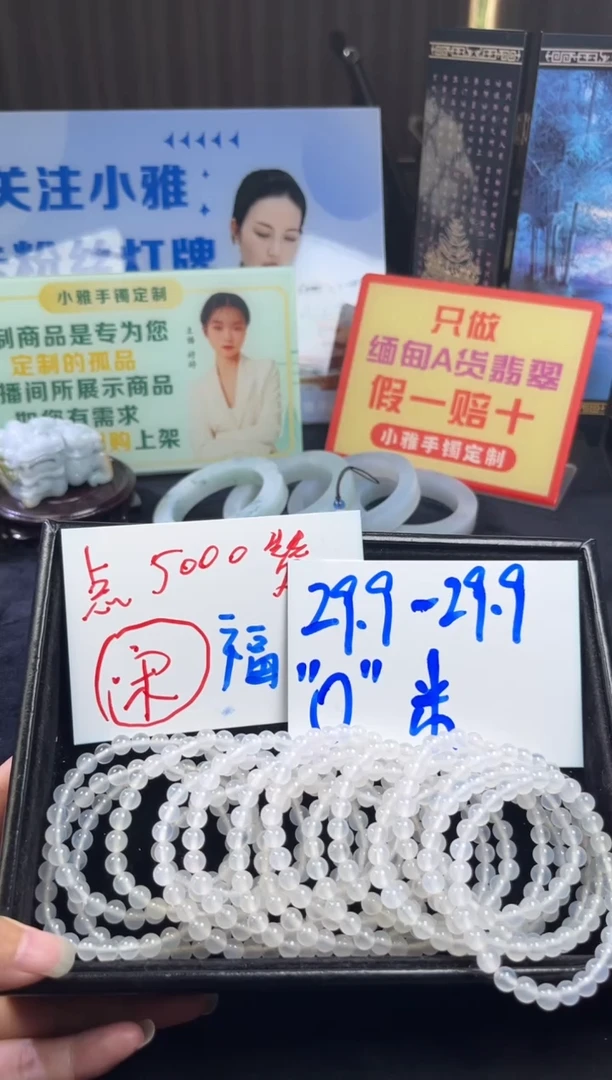 关注小雅
小雅手镯定制
制商品是专为您
定制的孤品
播间所展示商品
如您有需求
购上架
只做
缅甸A货翡翠
假一赔十
小雅手镯定制
点5000赞
福
29.9-29.9
"0"米